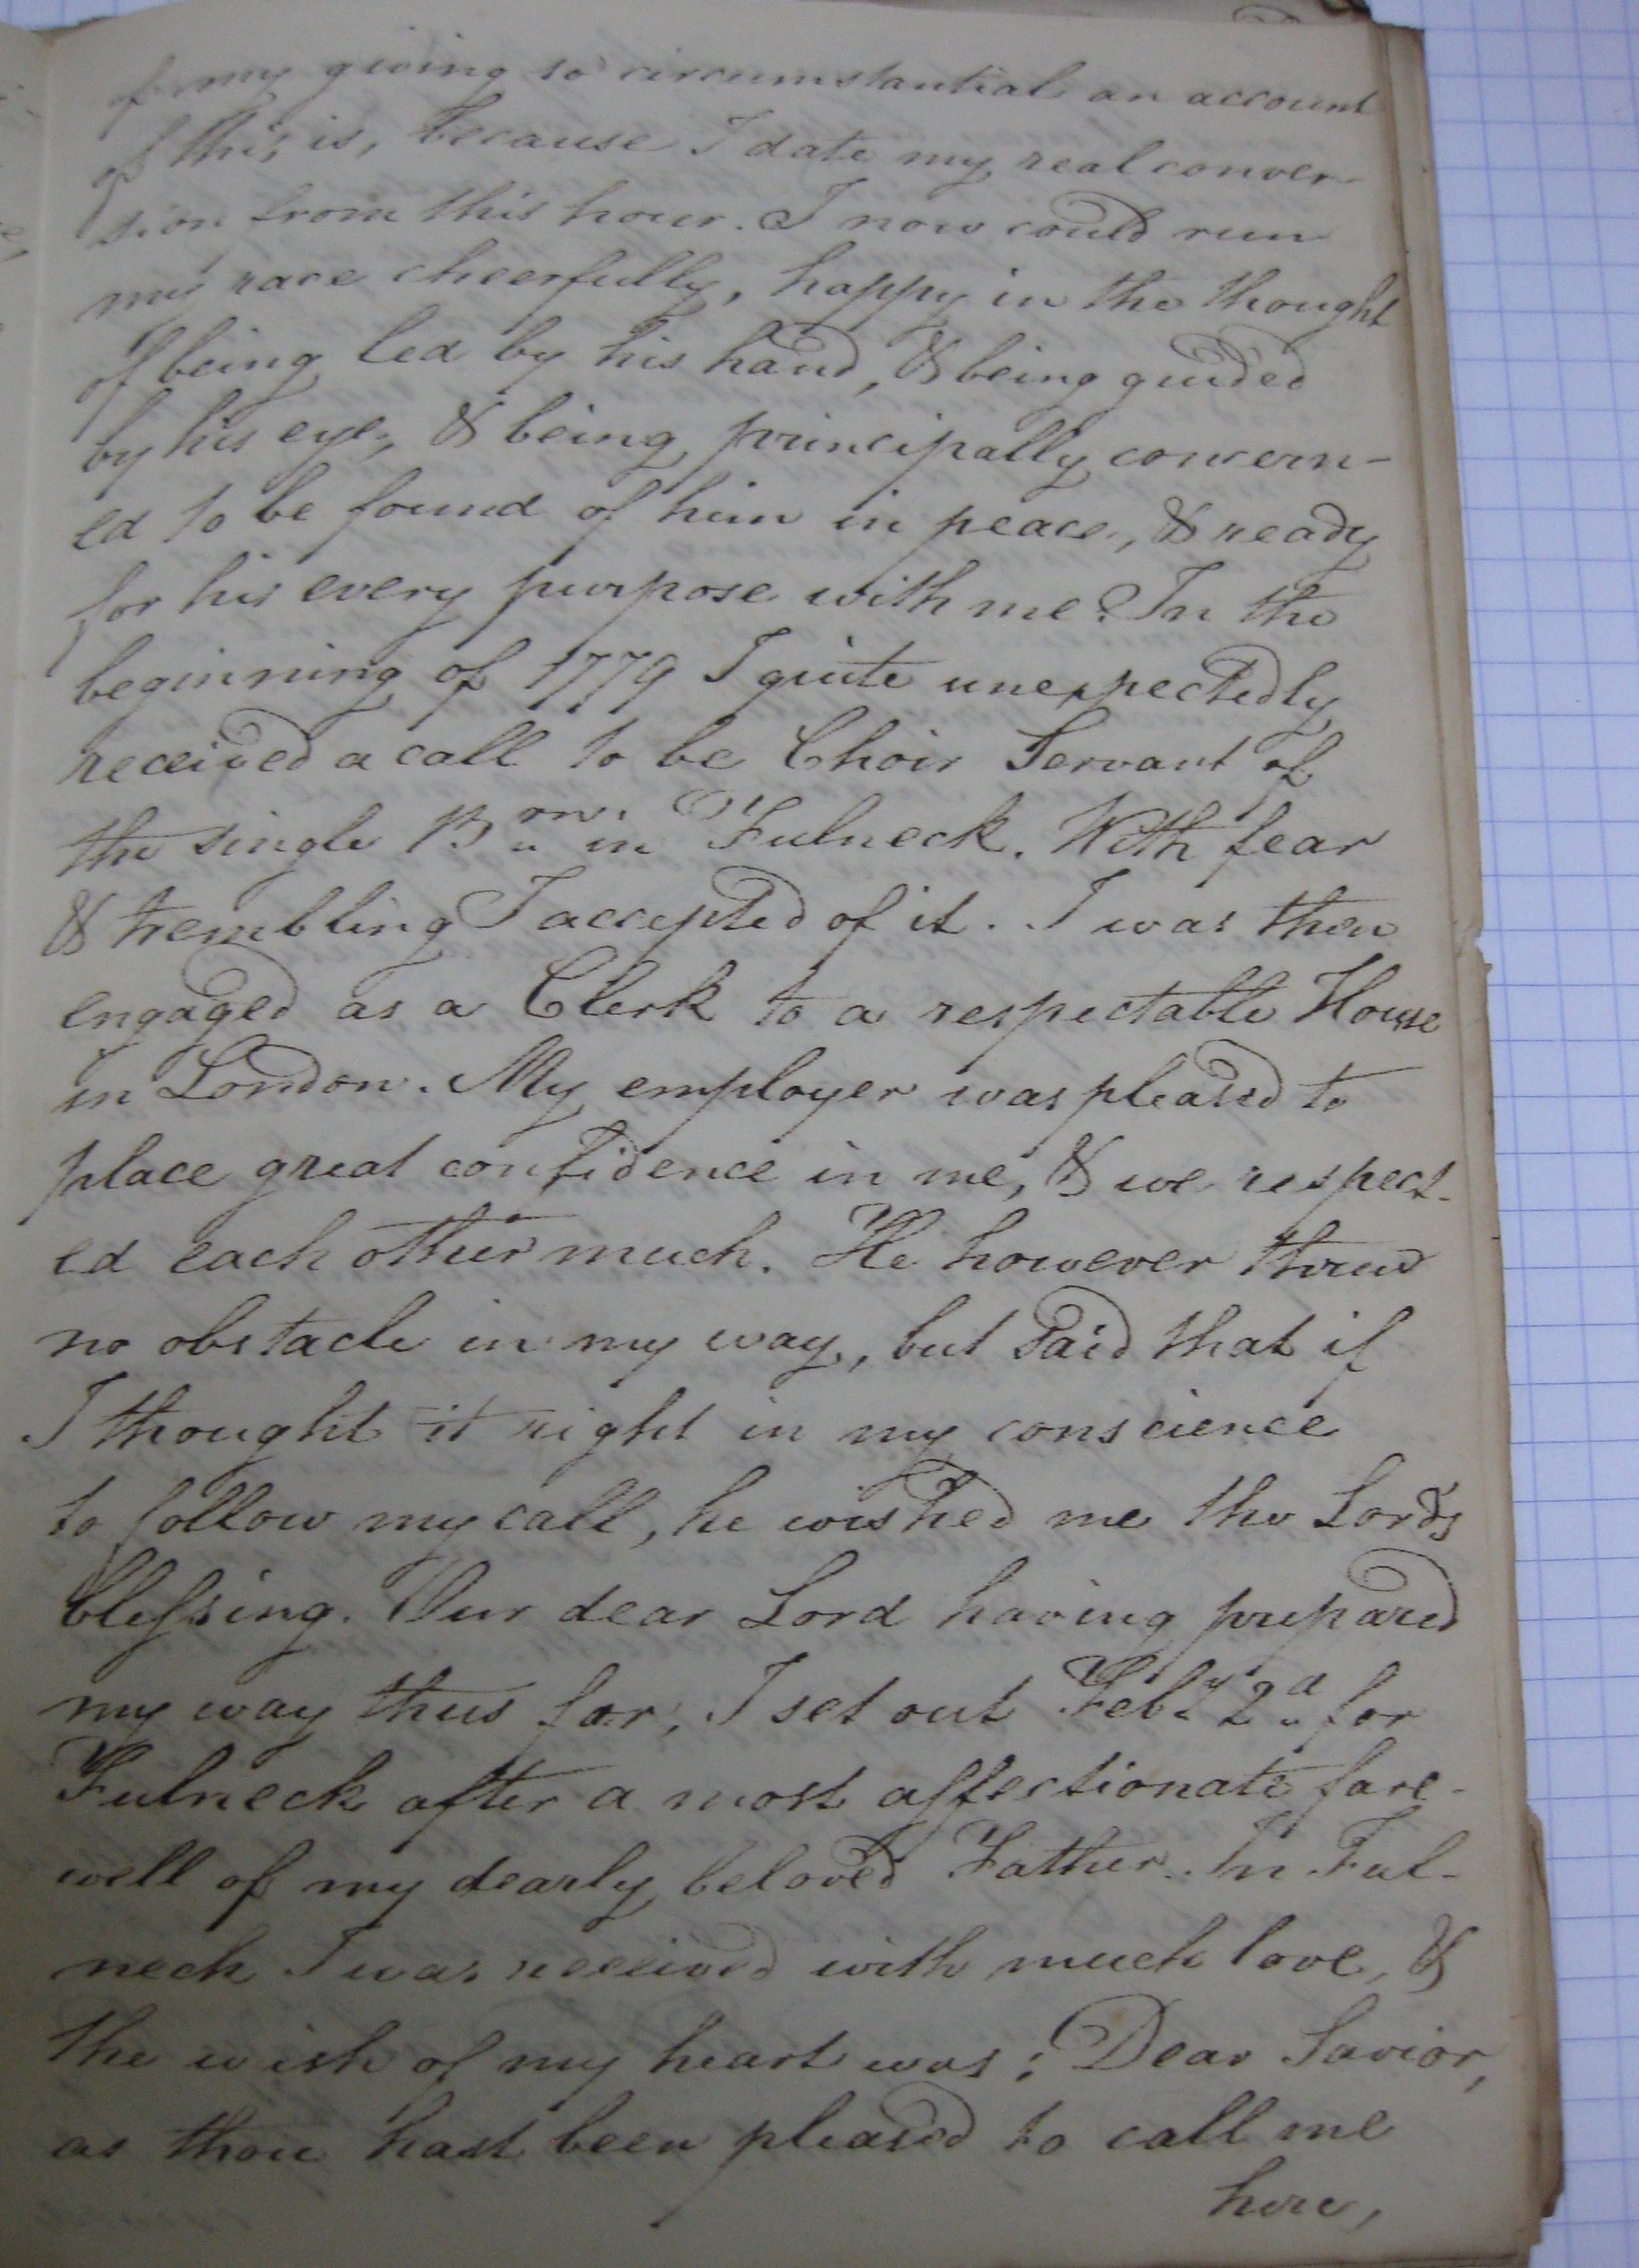 of my giving so circumstantial an account
of this is, because I date my real conver-
sion from this hour. I now could run
my race cheerfully, happy in the thought
of being led by his hand, & being guided
by his eye, & being principally concern-
ed to be found of him in peace, & ready
for his every purpose with me. In the
beginning of 1779 I quite unexpectedly
received a call to be Choir Servant of
the single Brn. in Fulneck. With fear
& trembling I accepted of it. I was then
engaged as a Clerk to a respectable House
in London. My employer was pleased to
place great confidence in me, & we respect-
ed each other much. He however threw
no obstacle in my way, but said that if
I thought it right in my conscience
to follow my call, he wished me the Lords
blessing. Our dear Lord having prepared
my way thus far, I set out Feby 2d for
Fulneck after a most affectionate fare-
well of my dearly beloved Father. In Ful-
neck I was received with much love, &
the wish of my heart was; Dear Savior,
as thou hast been pleased to call me
here,